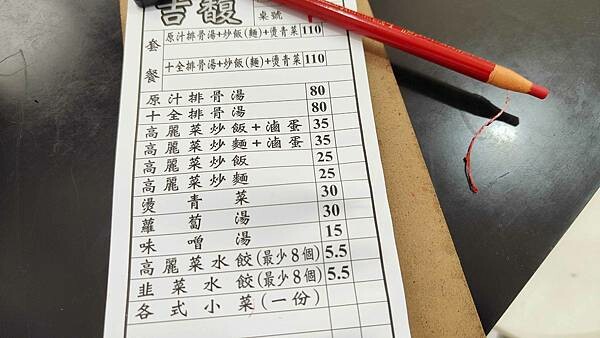 吉馥 桌號
套餐 原汁排骨湯+炒飯(麵)+燙青菜 110
十全排骨湯+炒飯(麵)+燙青菜 110
原汁排骨湯 80
十全排骨湯 80
高麗菜炒飯+滷蛋 35
高麗菜炒麵+滷蛋 35
高麗菜炒飯 25
高麗菜炒麵 25
燙青菜 30
蘿蔔湯 30
味噌湯 15
高麗菜水餃(最少8個) 5.5
韭菜水餃(最少8個) 5.5
各式小菜(一份)